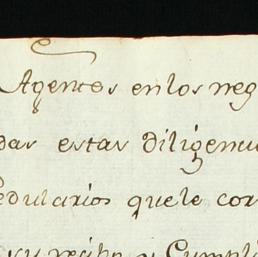 Agentes en los neg
das estas diligenci
Cedularios que le cor
su recibo y Cumpli